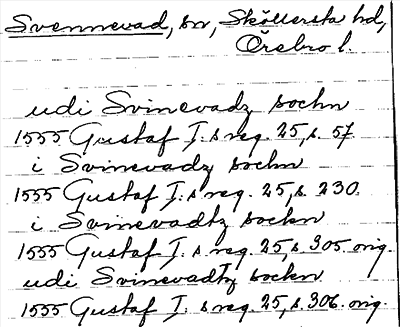 Svennevad, sn, Sköllersta hd,
Örebro l.
udi Svinevadz sochn
1555 Gustaf I:s reg. 25, s. 57.
i Svinevadz sochn
1555 Gustaf I:s reg. 25, s. 230.
i Svinevadtz sochn
1555 Gustaf I:s reg. 25, s. 305. orig.
udi Svinevadtz sochn
1555 Gustaf I:s reg. 25, s. 306. orig.